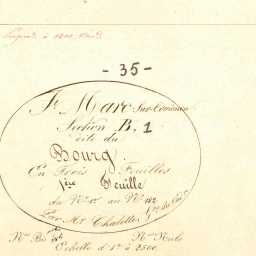 - 35 -
St Marc Sur Couesnon
Section B. 1
dite du
Bourg.
En Trois Feuilles
1ère Feuille
du No 1er au No 142
Par Mr Chalettes
No
No
Echelle d'1 à 2500.